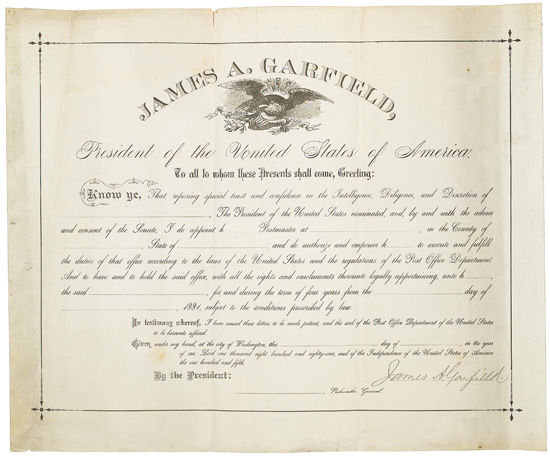 JAMES A. GARFIELD,
President of the United States of America.
To all to whom these Presents shall come, Greeting:
Know ye, That, reposing special trust and confidence in the Intelligence, Diligence, and Discretion of
, The President of the United States nominated, and, by and with the advice
and consent of the Senate, I do appoint h Postmaster at , in the County of
, State of , and do authorize and empower h to execute and fulfill
the duties of that office according to the laws of the United States and the regulations of the Post Office Department.
And to have and to hold the said office, with all the rights and emoluments thereunto legally appertaining, unto h
the said , for and during the term of four years from the day of
, 1881, subject to the conditions prescribed by law.
In testimony whereof, I have caused these letters to be made patent, and the seal of the Post Office Department of the United States
to be hereunto affixed.
Given under my hand, at the city of Washington, this day of , in the year
of our Lord one thousand eight hundred and eighty-one, and of the Independence of the United States of America
the one hundred and fifth.
By the President: James A Garfield
Postmaster General.